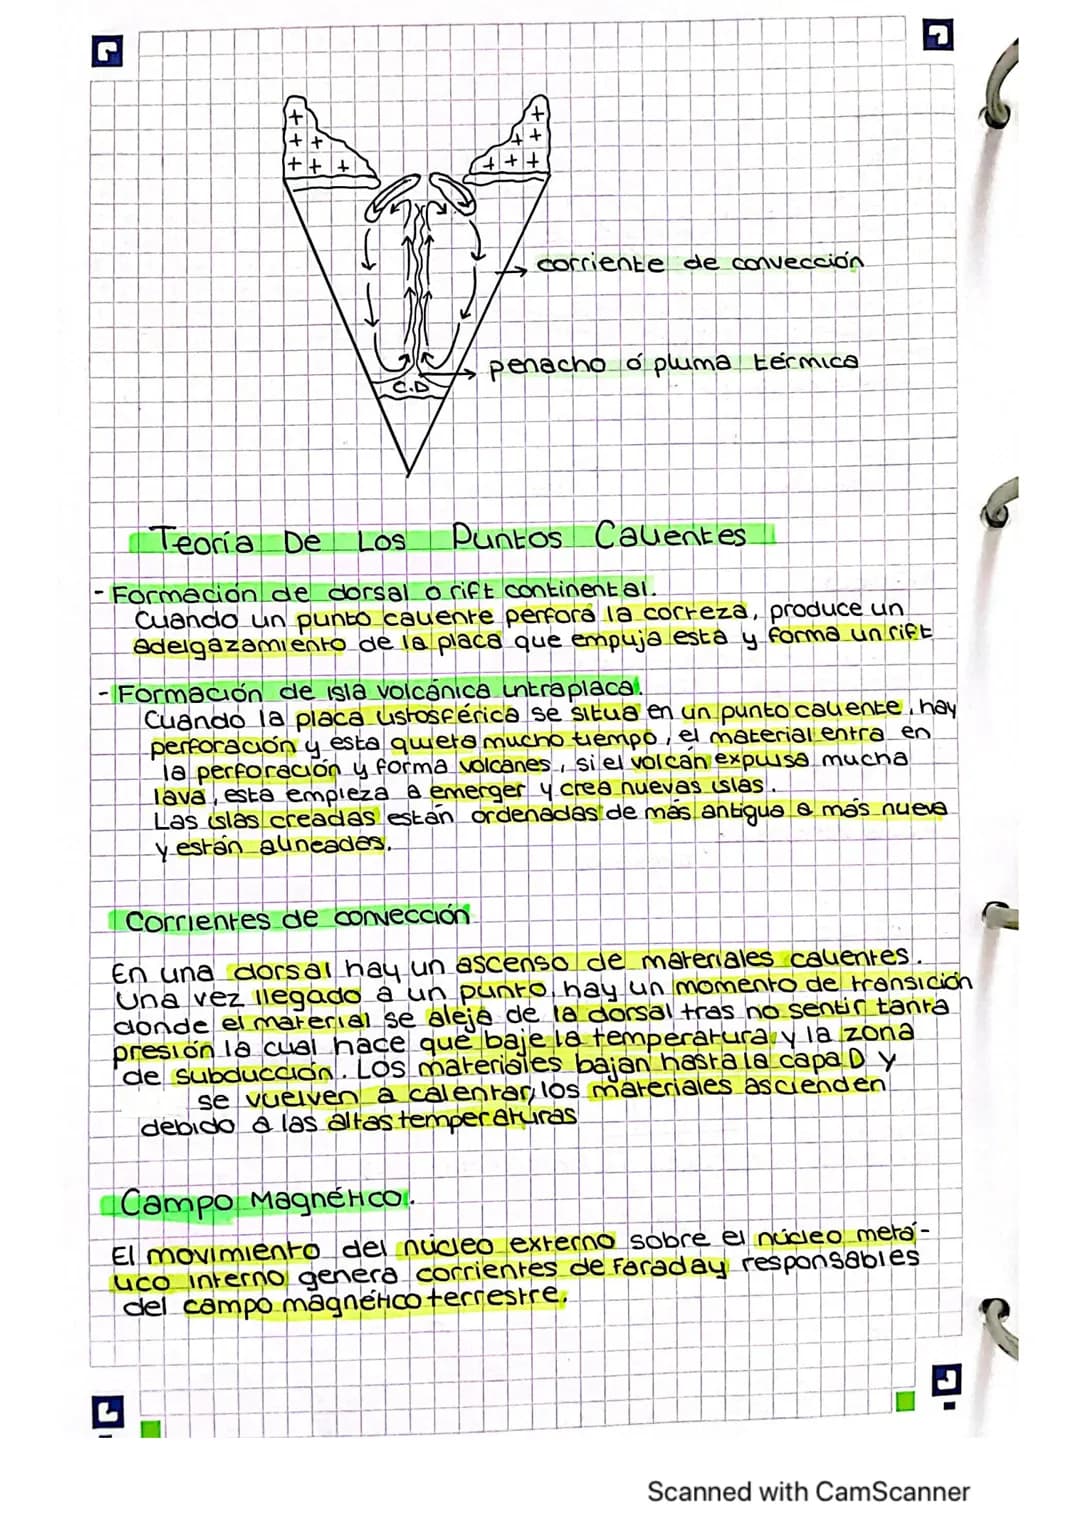 corriente de convección
penacho ó pluma térmica
C.D
Teoría De Los Puntos Calientes
- Formación de dorsal o rift continental.
Cuando un punto caliente perfora la corteza, produce un
adelgazamiento de la placa que empuja esta y forma un rift
- Formación de isla volcánica intraplaca.
Cuando la placa listosférica se situa en un punto caliente, hay
perforación y esta quieta mucho tiempo, el material entra en
la perforación y forma volcanes, si el volcán expulsa mucha
lava, esta empieza a emerger y crea nuevas islas.
Las islas creadas están ordenadas de más antigua a más nueva
y están alineadas.
Corrientes de convección
En una dorsal hay un ascenso de materiales calientes.
Una vez llegado a un punto, hay un momento de transición
donde el material se aleja de la dorsal tras no sentir tanta
presión la cual hace que baje la temperatura y la zona
de subducción. Los materiales bajan hasta la capa D y
se vuelven a calentar, los materiales ascienden
debido a las altas temperaturas
Campo Magnético.
El movimiento del núcleo externo sobre el núcleo metá-
lico interno genera corrientes de Faraday responsables
del campo magnético terrestre.
Scanned with CamScanner